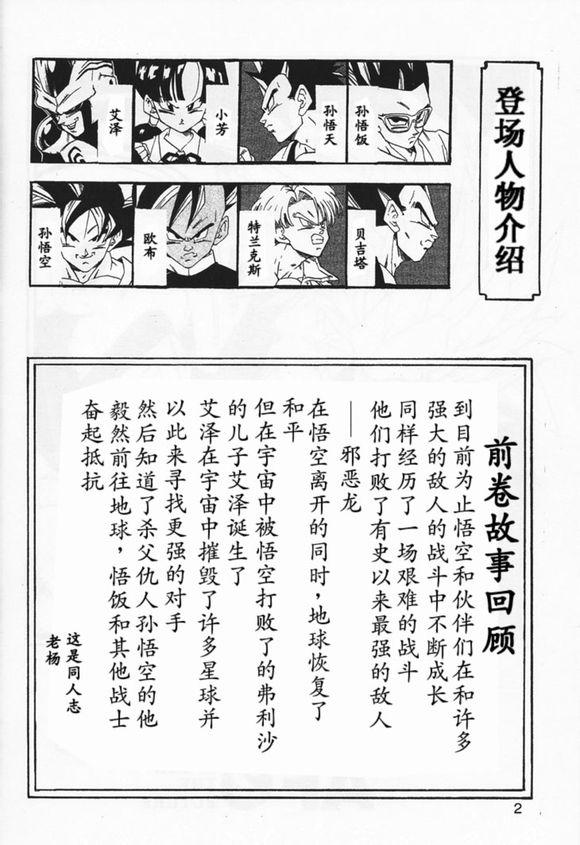 登场人物介绍
孙悟饭
孙悟天
小芳
艾泽
贝吉塔
特兰克斯
欧布
孙悟空
前卷故事回顾
到目前为止悟空和伙伴们在和许多
强大的敌人的战斗中不断成长
同样经历了一场艰难的战斗
他们打败了有史以来最强的敌人
——邪恶龙
在悟空离开的同时，地球恢复了
和平
但在宇宙中被悟空打败了的弗利沙
的儿子艾泽诞生了
艾泽在宇宙中摧毁了许多星球并
以此来寻找更强的对手
然后知道了杀父仇人孙悟空的他
毅然前往地球，悟饭和其他战士
奋起抵抗
这是同人志
老杨
2